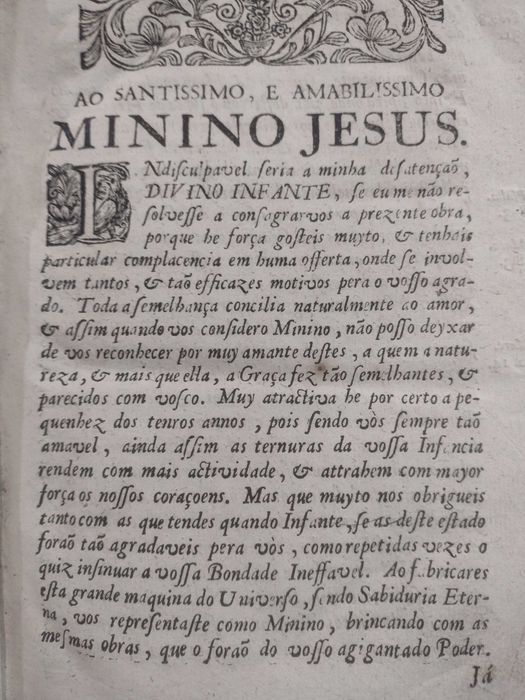 AO SANTISSIMO, E AMABILISSIMO
MININO JESUS.
INdisculpavel seria a minha desatençaõ,
DIVINO INFANTE, se eu me não re-
solvesse a consagrarvos a prezente obra,
porque he força gosteis muyto, & tenhais
particular complacencia em huma offerta, onde se invol-
vem tantos, & taõ efficazes motivos pera o vosso agra-
do. Toda a semelhança concilia naturalmente ao amor,
& assim quando vos considero Minino, não posso deyxar
de vos reconhecer por muy amante destes, a quem a natu-
reza, & mais que ella, a Graça fez tão semelhantes, &
parecidos com vosco. Muy atractiva he por certo a pe-
quenhez dos tenros annos, pois sendo vòs sempre taõ
amavel, ainda assim as ternuras da vossa Infancia
rendem com mais actividade, & attrahem com mayor
força os nossos coraçoens. Mas que muyto nos obrigueis
tanto com as que tendes quando Infante, se as deste estado
foraõ taõ agradaveis pera vòs, como repetidas vezes o
quiz insinuar a vossa Bondade Ineffavel. Ao fabricares
esta grande maquina do Universo, sendo Sabiduria Eter-
na, vos representaste como Minino, brincando com as
mesmas obras, que o foraõ do vosso agigantado Poder.
Já